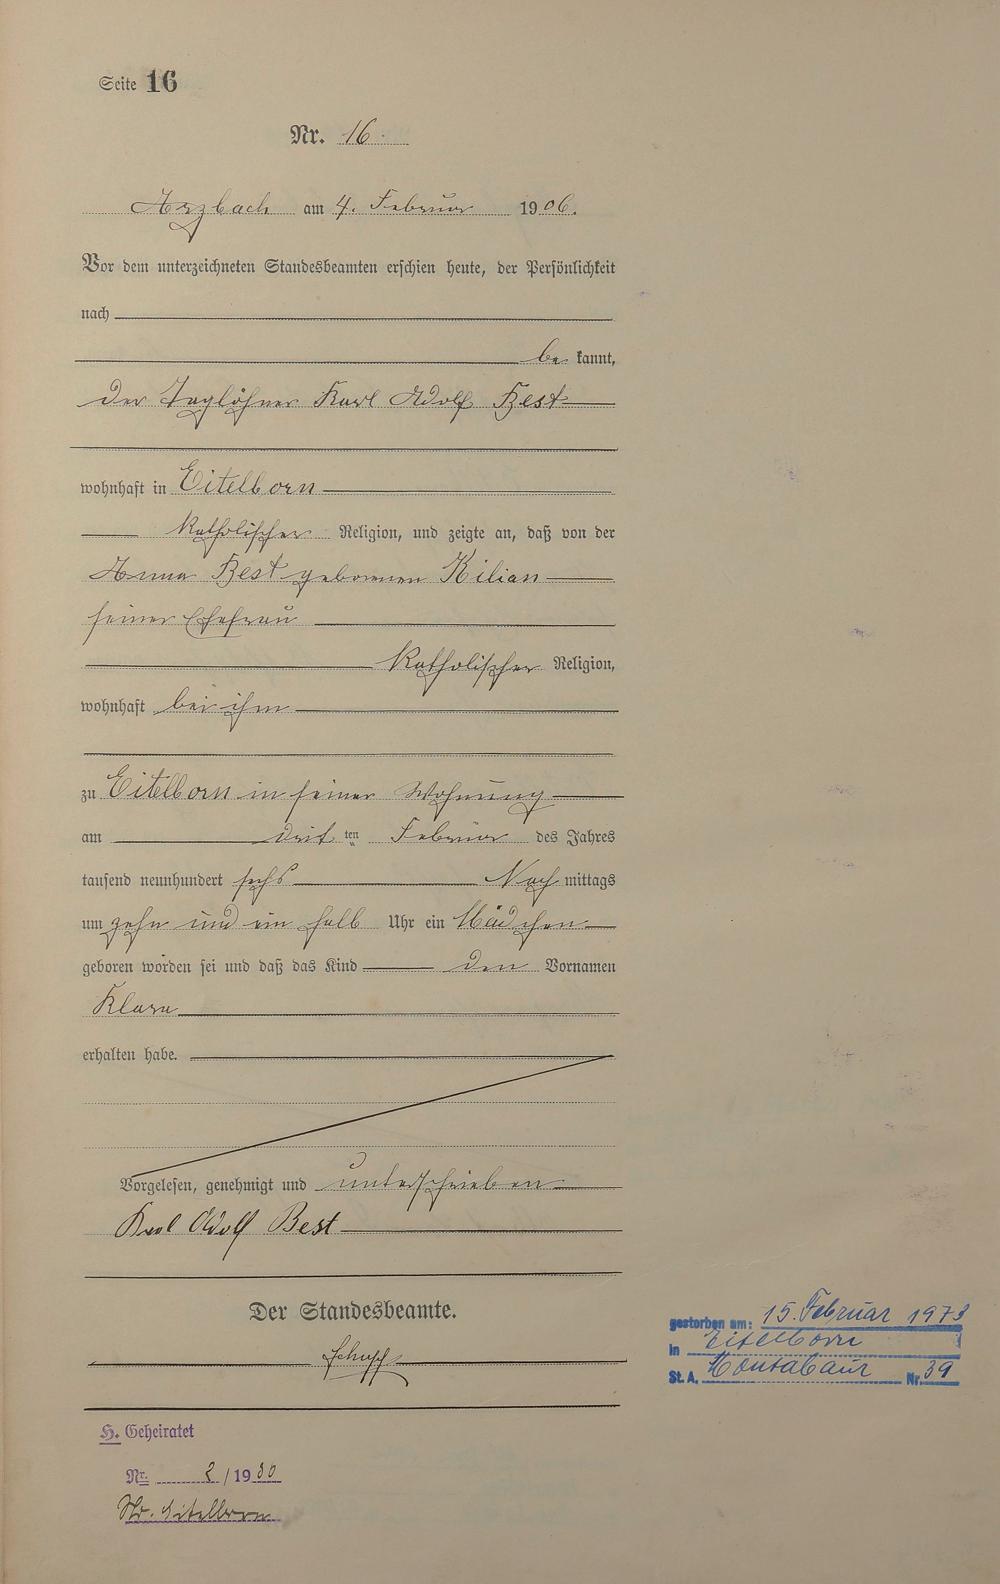 Seite 16
Nr. 16.
Arzbach am 4. Februar 1906.
Vor dem unterzeichneten Standesbeamten erschien heute, der Persönlichkeit
nach
be kannt,
der Taglöhner Karl Adolf Best
wohnhaft in Eitelborn
katholischer Religion, und zeigte an, daß von der
Anna Best geborenen Kilian
seiner Ehefrau
katholischer Religion,
wohnhaft bei ihm
zu Eitelborn in seiner Wohnung
am dritten Februar des Jahres
tausend neunhundert sechs Nach mittags
um zehn und ein halb Uhr ein Mädchen
geboren worden sei und daß das Kind den Vornamen
Klara
erhalten habe.
Vorgelesen, genehmigt und unterschrieben
Karl Adolf Best
Der Standesbeamte.
gestorben am: 15. Februar 1973
in Eitelborn
St. A. Montabaur Nr. 39
H. Geheiratet
Nr. 2/1930
Eitelborn